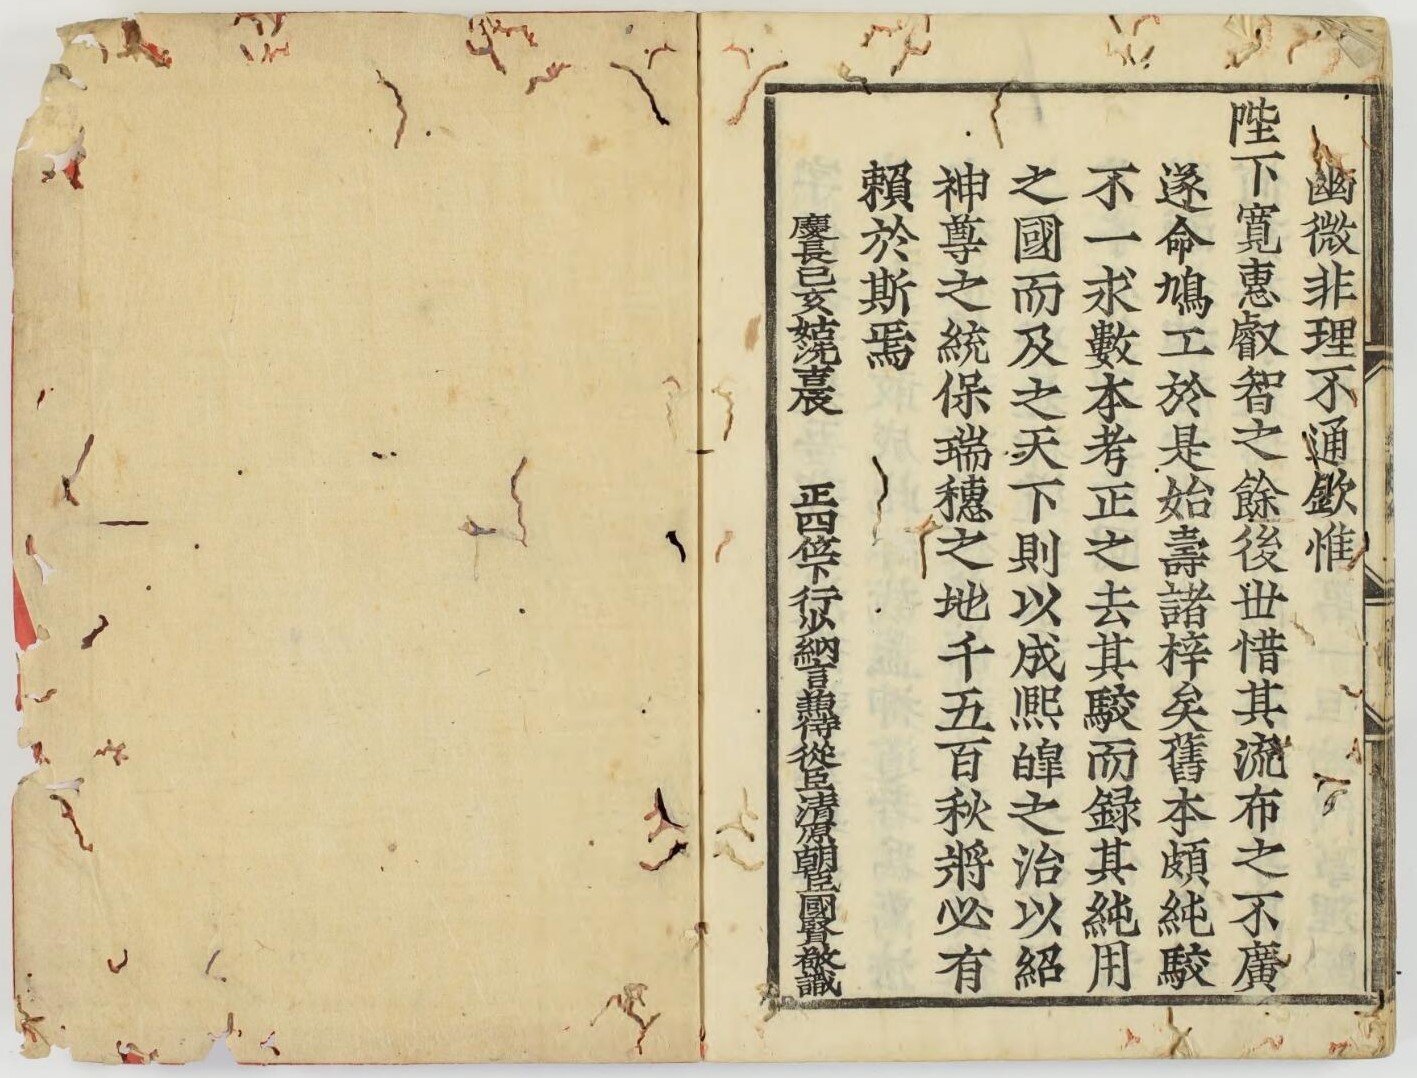 幽微非理不通欽惟
陛下寛惠叡智之餘後世惜其流布之不廣
遂命鳩工於是始壽諸梓矣舊本頗純駮
不一求數本考正之去其駮而録其純用
之國而及之天下則以成熈皥之治以紹
神尊之統保瑞穗之地千五百秋將必有
賴於斯焉
慶長己亥姑洗吉辰 正四位下行少納言兼侍從臣清原朝臣國賢敬識